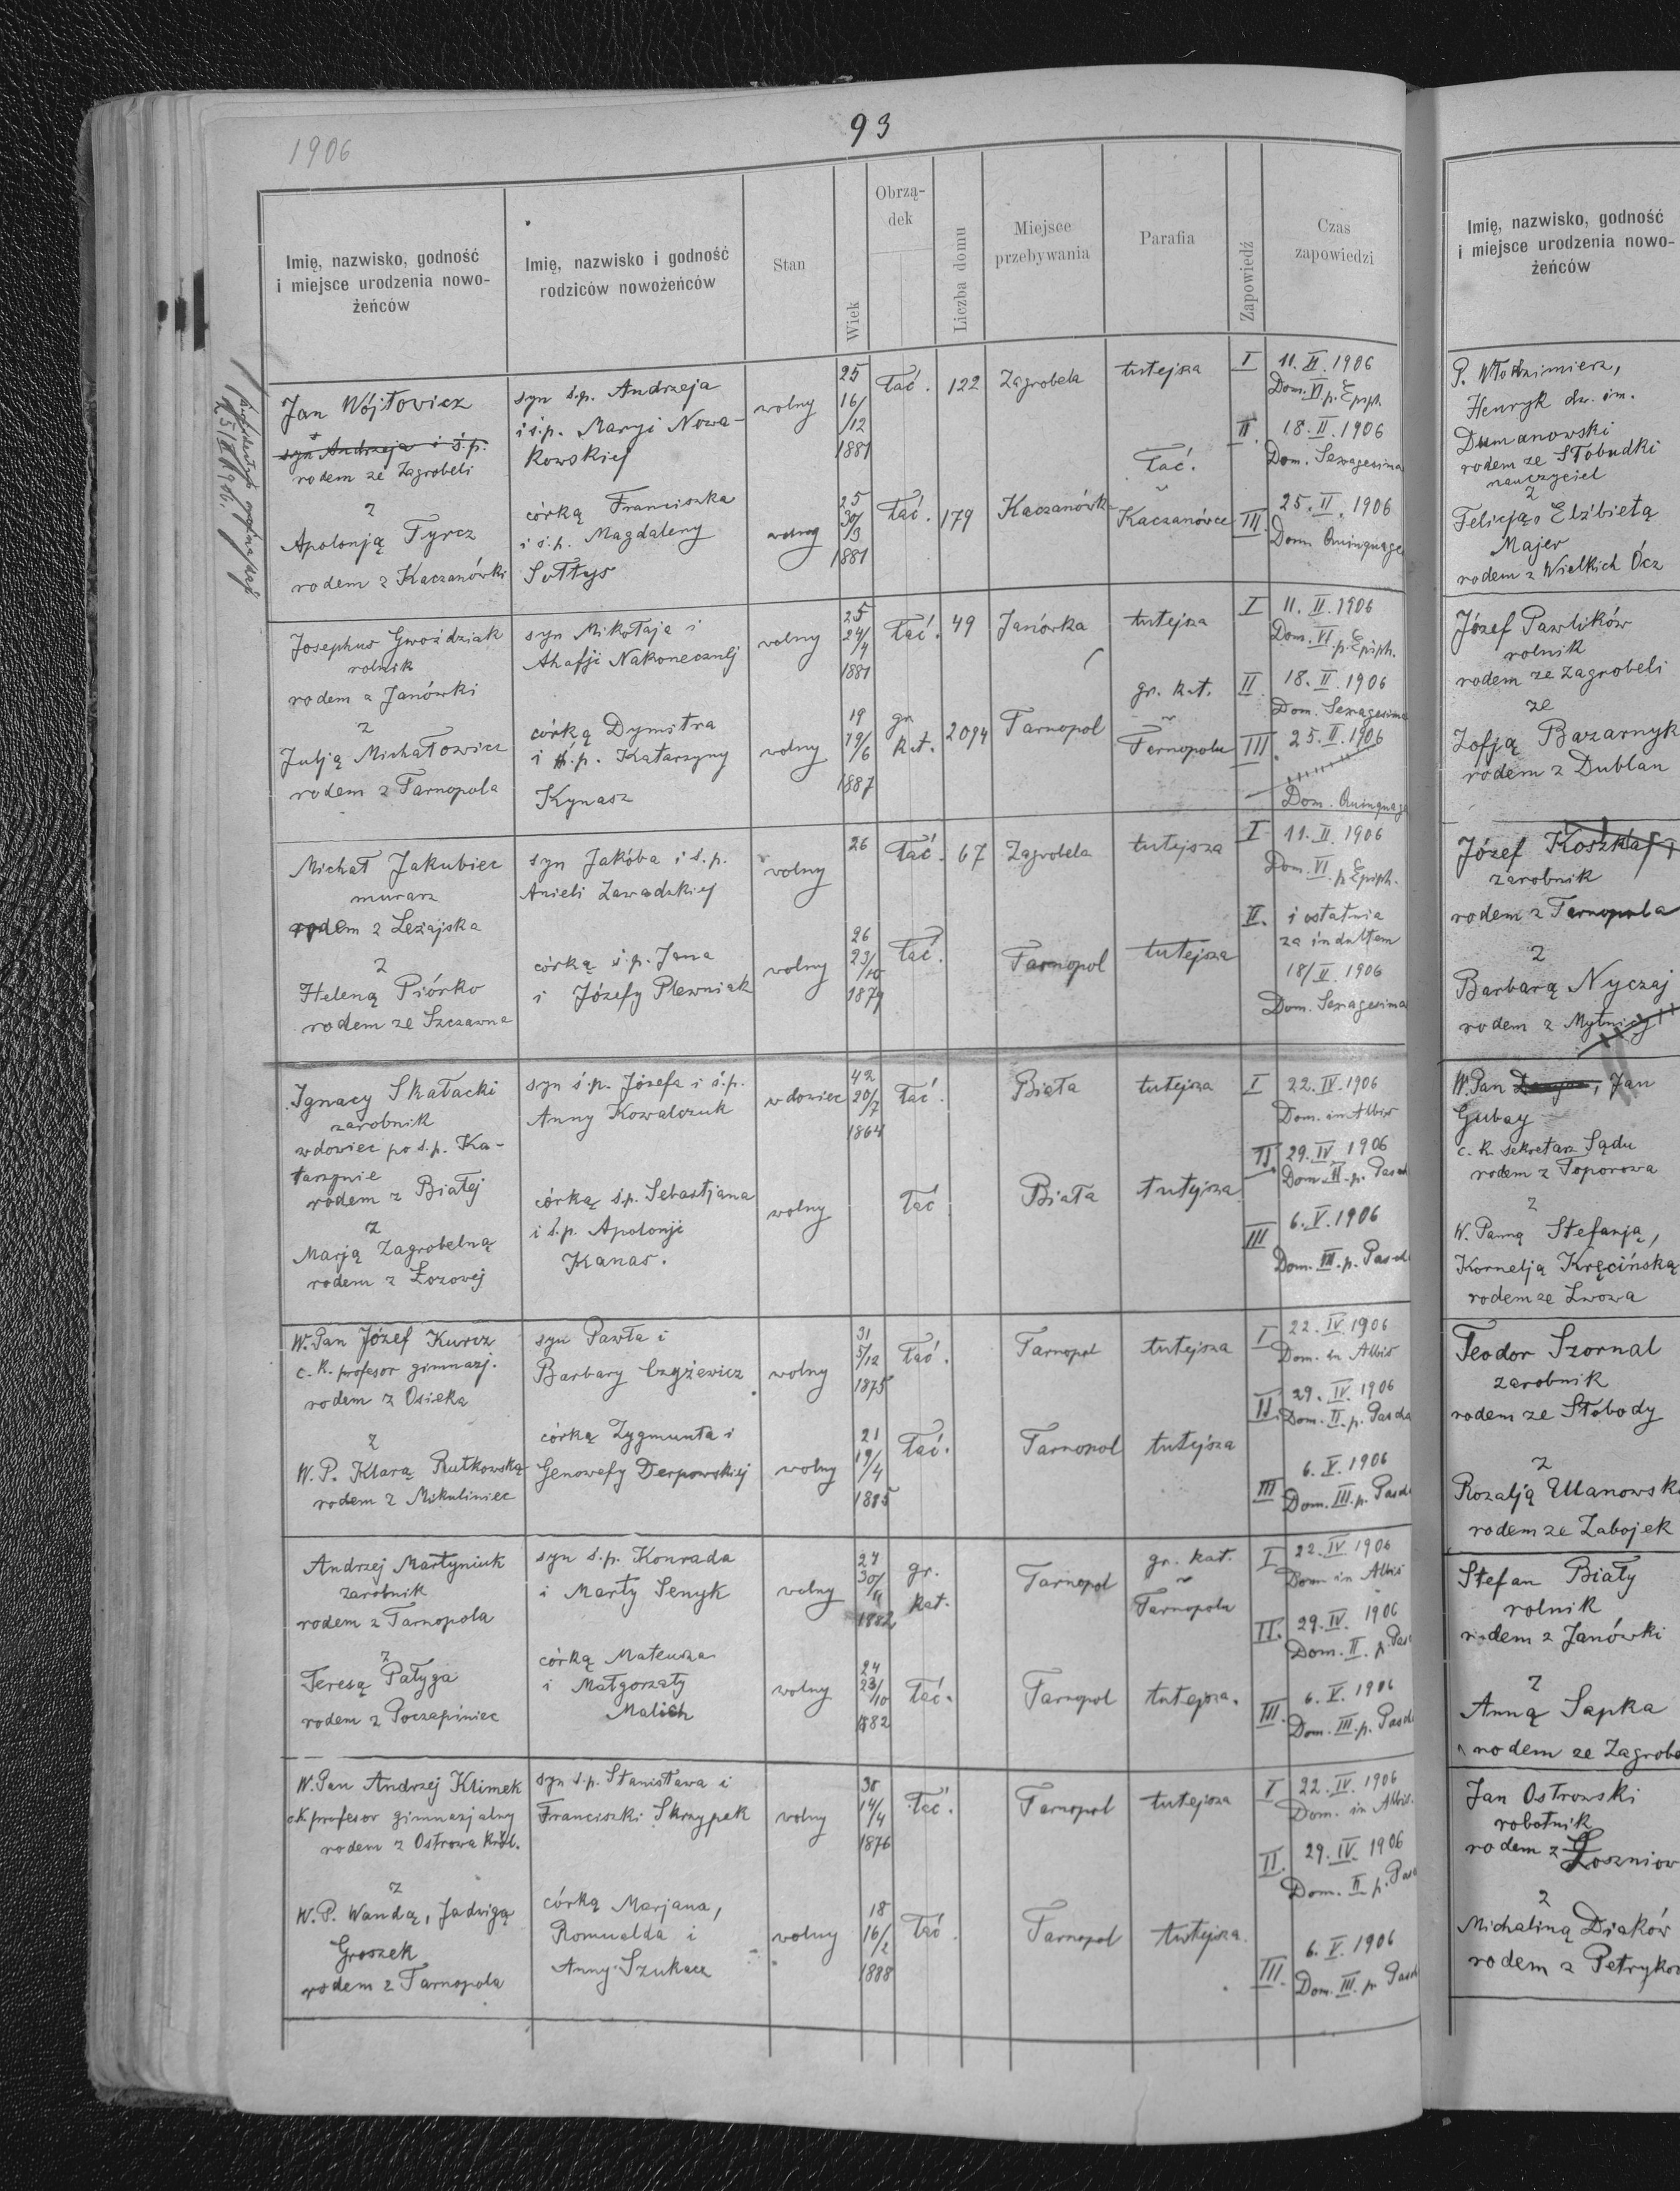 93
1906
Imię, nazwisko, godność
i miejsce urodzenia nowo-
żeńców
Imię, nazwisko i godność
rodziców nowożeńców
Stan
Wiek
Obrzą-
dek
Liczba domu
Miejsce
przebywania
Parafia
Zapowiedź
Czas
zapowiedzi
Jan Wójtowicz
syn Andrzeja i ś.p.
rodem ze Zagrobeli
z
Apolonją Tyrcz
rodem z Kaczanówki
syn ś.p. Andrzeja
i ś.p. Maryi Nowa-
kowskiej
córką Franciszka
i ś.p. Magdaleny
Sołtys
wolny
wolny
25
16/
/12
1881
25
30/
/3
1881
łać.
łać.
122
179
Zagrobela
Kaczanówk
tutejsza
łać.
w
Kaczanówce
I
11. II. 1906
Dom. VI p. Epiph
II.
18. II. 1906
Dom. Sexagesima
III.
25. II. 1906
Dom Quinquage
Josephus Gwoździak
rolnik
rodem z Janówki
z
Julją Michałowicz
rodem z Tarnopola
syn Mikołaja i
Ahafji Nakonecznej
córką Dymitra
i ś.p. Katarzyny
Kynasz
wolny
wolny
25
24/
/4
1881
19
19/
/6
1887
łać.
gr.
kat.
49
2094
Janówka
Tarnopol
tutejsza
gr. kat.
w
Tarnopolu
I
11. II. 1906
Dom. VI p. Epiph.
II.
18. II. 1906
Dom. Sexagesima
III.
25. II. 1906
Dom. Quinquag
Michał Jakubiec
murarz
rodem z Leżajska
z
Heleną Piórko
rodem ze Szczawna
syn Jakóba i ś.p.
Anieli Zawadzkiej
córką ś.p. Jana
i Józefy Plewniak
wolny
wolny
26
26
23/
/10
1879
łać.
łać.
67
Zagrobela
Tarnopol
tutejsza
tutejsza
I
11. II. 1906
Dom. VI p. Epiph.
II.
i ostatnia
za indultem
18/II. 1906
Dom. Sexagesima
Ignacy Skałacki
zarobnik
wdowiec po ś.p. Ka-
tarzynie
rodem z Białej
z
Marją Zagrobelną
rodem z Łozowej
syn ś.p. Józefa i ś.p.
Anny Kowalczuk
córką ś.p. Sebastjana
i ś.p. Apolonji
Kanas.
wdowiec
wolny
42
20/
/7
1864
łać.
łać
Biała
Biała
tutejsza
tutejsza
I
22. IV. 1906
Dom. in Albis
II.
29. IV. 1906
Dom. II. p. Pasch
III
6. V. 1906
Dom. III. p. Pasch
W. Pan Józef Kurcz
c. k. profesor gimnazj.
rodem z Osieka
z
W. P. Klarą Rutkowską
rodem z Mikuliniec
syn Pawła i
Barbary Czyżewicz
córką Zygmunta i
Genowefy Derpowskiej
wolny
wolny
31
5/12
1875
21
19/
/4
1885
łać.
łać.
Tarnopol
Tarnopol
tutejsza
tutejsza
I
22. IV. 1906
Dom. in Albis
II.
29. IV. 1906
Dom. II. p. Pascha
III
6. V. 1906
Dom. III. p. Pasch
Andrzej Martyniuk
zarobnik
rodem z Tarnopola
z
Teresą Patyga
rodem z Poczapiniec
syn ś.p. Konrada
i Marty Senyk
córką Mateusza
i Małgorzaty
wolny
wolny
30/
/11
1882
24
23/
/10
1882
gr.
kat.
łać.
Tarnopol
Tarnopol
gr. kat.
w
Tarnopolu
tutejsza.
I
22. IV 1906
Dom in Albis
II.
29. IV. 1906
Dom. II. p. Pas
III.
6. V. 1906
Dom. III. p. Pasch
W. Pan Andrzej Klimek
ck profesor gimnazjalny
rodem z Ostrowa król.
z
W. P. Wandą, Jadwigą
Groszek
rodem z Tarnopola
syn ś.p. Stanisława i
Franciszki Skrzypek
córką Marjana,
Romualda i
Anny Szukacz
wolny
wolny
30
14/
/4
1876
18
16/
/2
1888
łać.
łać.
Tarnopol
Tarnopol
tutejsza
tutejsza.
I
22. IV. 1906
Dom. in Albis.
II.
29. IV. 1906
Dom. II p. Pasc
III.
6. V. 1906
Dom. III. p. Pasch
Imię, nazwisko, godność
i miejsce urodzenia nowo-
żeńców
P. Włodzimierz,
Henryk dw. im.
Dumanowski
rodem ze Słobudki
nauczyciel
z
Felicją, Elżbietą
Majer
rodem z Wielkich Ócz
Józef Pawlików
rolnik
rodem ze Zagrobeli
ze
Zofją Bazarnyk
rodem z Dublan
Józef Koszka
zarobnik
rodem z Tarnopola
z
Barbarą Nyczaj
rodem z Mytnicy
W. Pan Jan
Gubay
c. k. sekretarz Sądu
rodem z Toporowa
z
W. Panną Stefanją,
Kornelją Kręcińską
rodem ze Lwowa
Teodor Szornal
zarobnik
rodem ze Słobody
z
Rozalją Ulanowsk
rodem ze Zabojek
Stefan Biały
rolnik
rodem z Janówki
z
Anną Sapka
rodem ze Zagrobe
Jan Ostrowski
robotnik
rodem z Łoszniow
z
Michaliną Diaków
rodem z Petryków